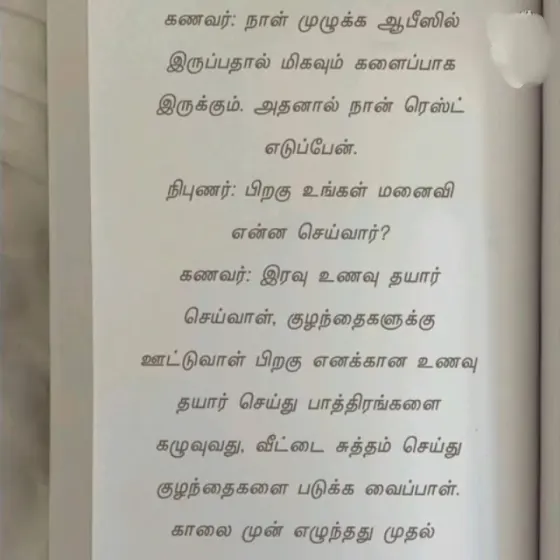 கணவர்: நாள் முழுக்க ஆபீஸில்
இருப்பதால் மிகவும் களைப்பாக
இருக்கும். அதனால் நான் ரெஸ்ட்
எடுப்பேன்.
நிபுணர்: பிறகு உங்கள் மனைவி
என்ன செய்வார்?
கணவர்: இரவு உணவு தயார்
செய்வாள், குழந்தைகளுக்கு
ஊட்டுவாள் பிறகு எனக்கான உணவு
தயார் செய்து பாத்திரங்களை
கழுவுவது, வீட்டை சுத்தம் செய்து
குழந்தைகளை படுக்க வைப்பாள்.
காலை முன் எழுந்தது முதல்